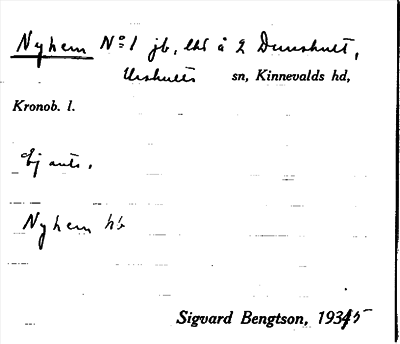 Nyhem No 1 jb, lht å 2 Dunshult,
Urshults sn, Kinnevalds hd,
Kronob. l.
Ej ants.
Nyhem hb
Sigvard Bengtson, 1935